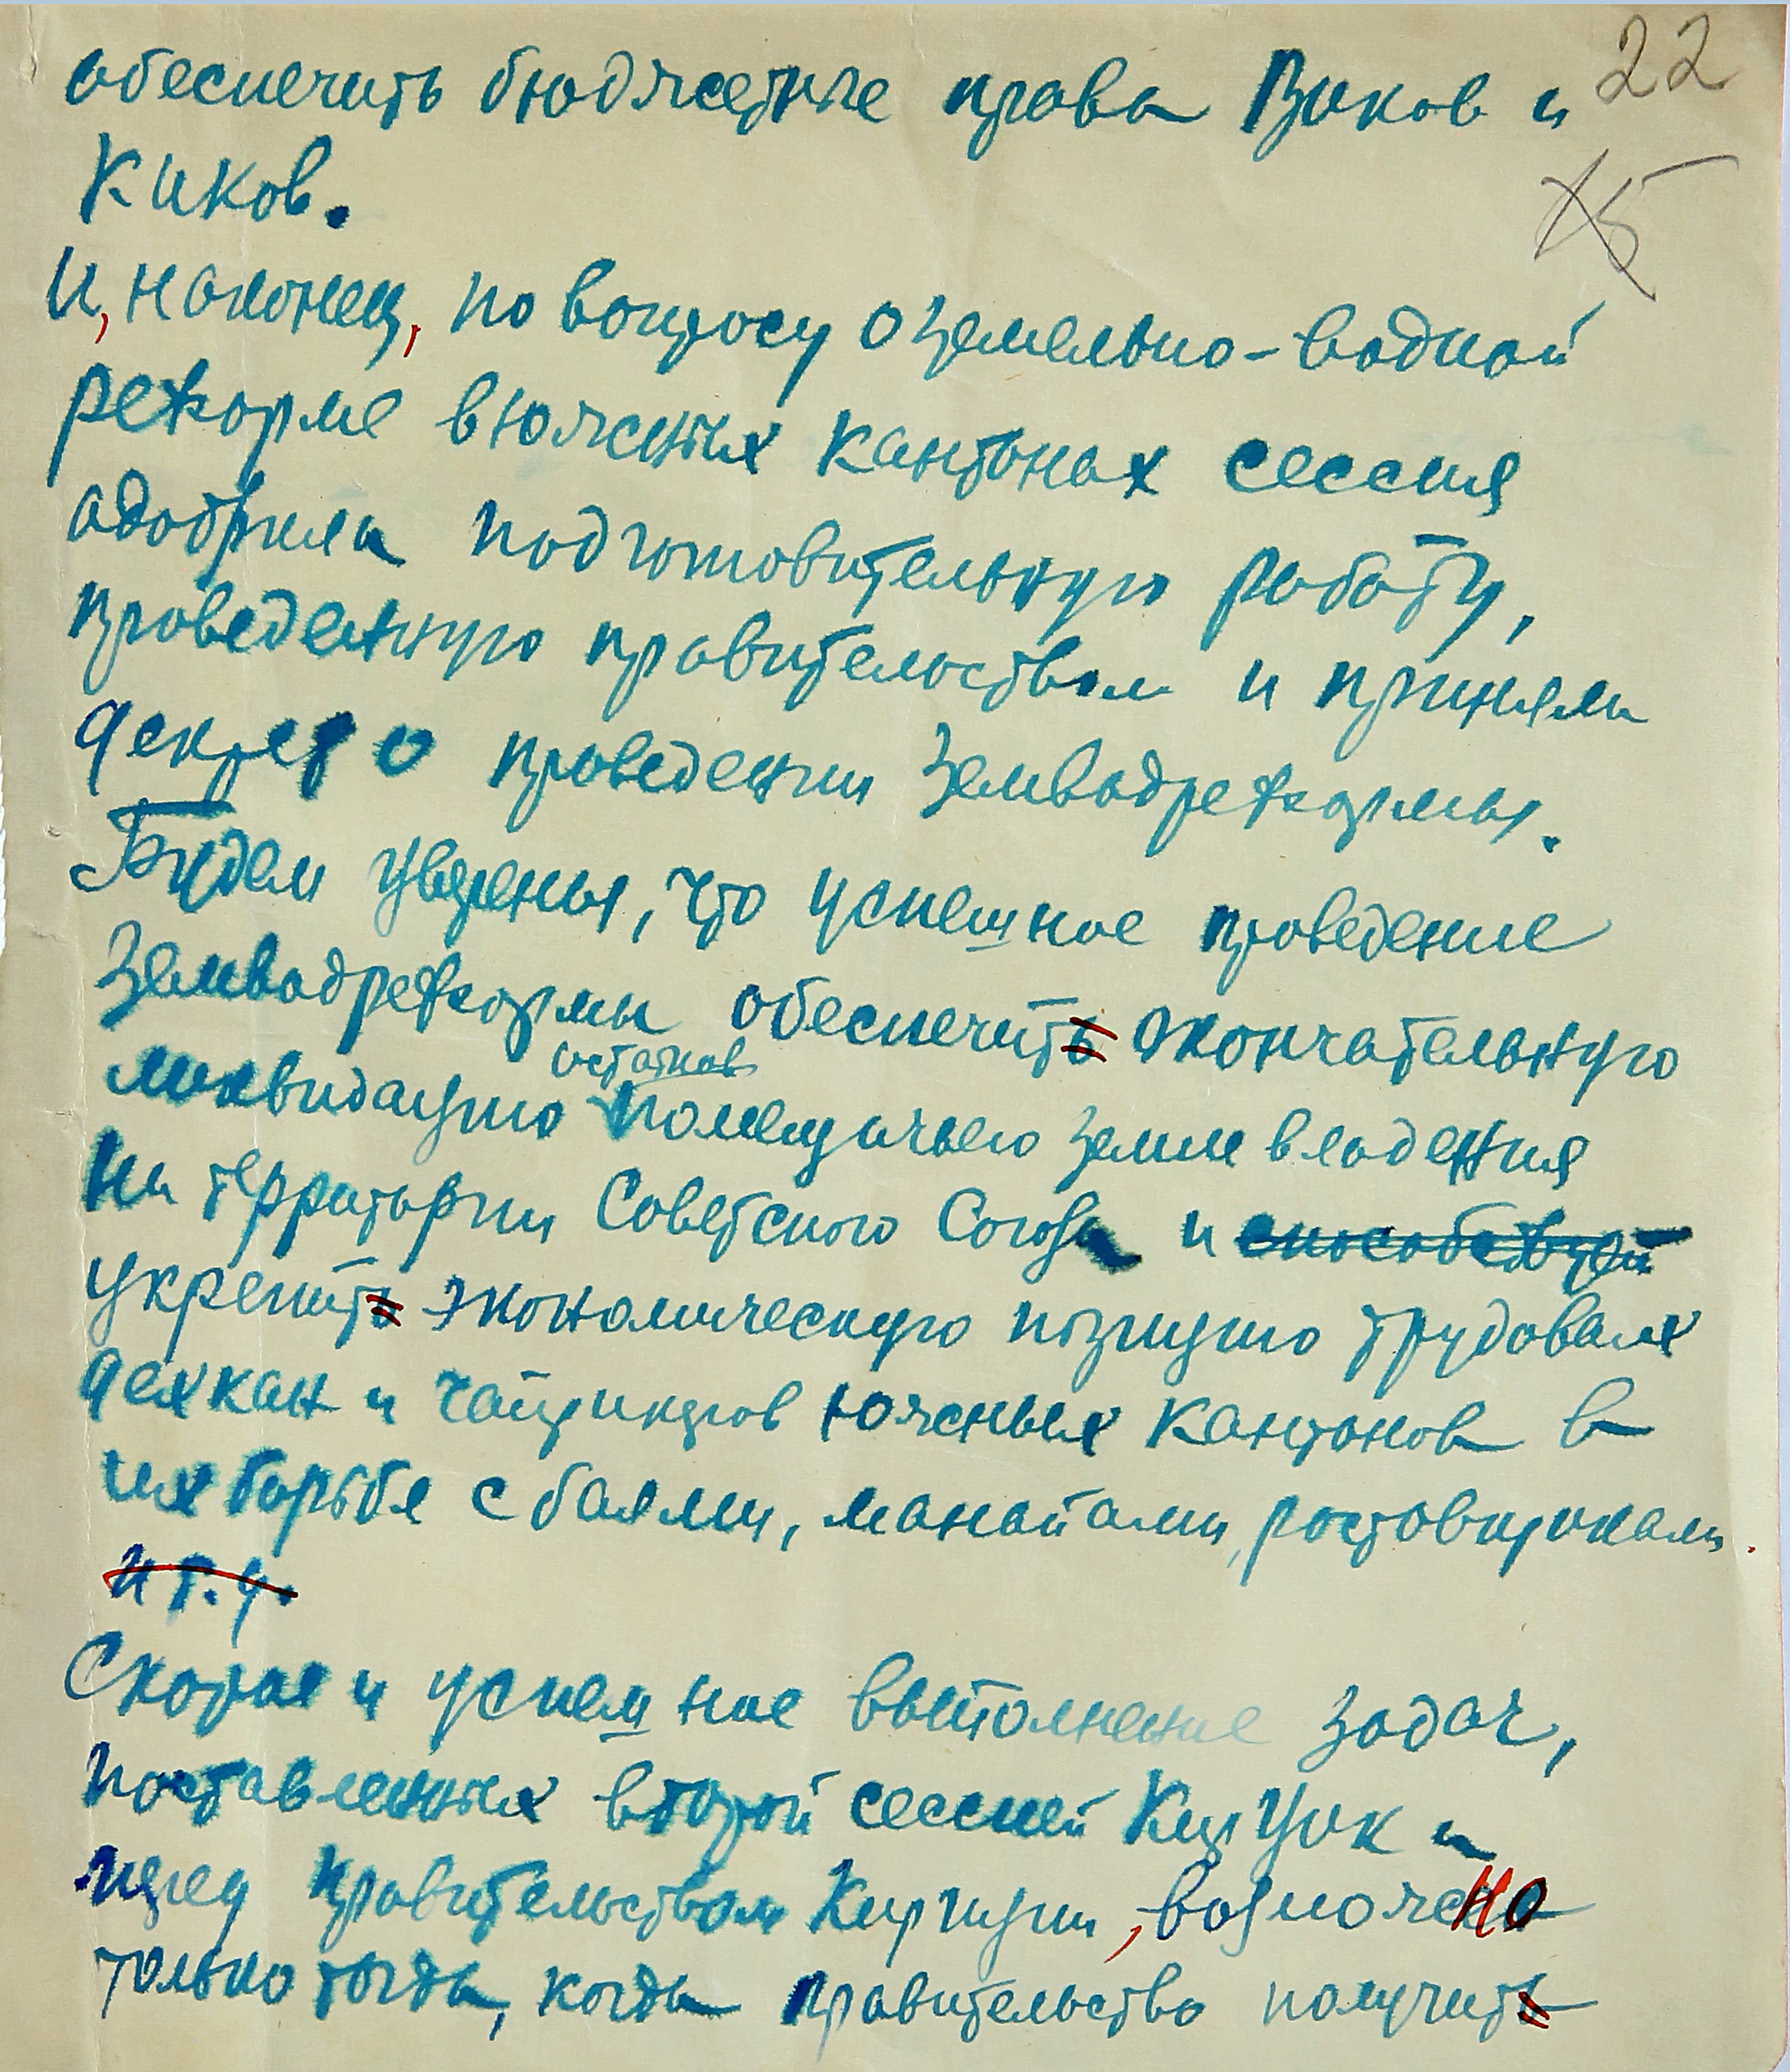 22
обеспечить бюджетные права Виков и
Киков.
15
И, наконец, по вопросу о земельно-водной
реформе в южных кантонах сессия
одобрила подготовительную работу,
проведенную правительством и приняла
декрет о проведении Земводреформы.
Будем уверены, что успешное проведение
Земводреформы обеспечить окончательную
остатков
ликвидацию помещичьего землевладения
на территории Советского Союза и способствует
укрепить экономическую позицию трудовых
дехкан и чайрикеров южных кантонов в
их борьбе с баями, манапами, ростовщиками.
и т.д.
Скорое и успешное выполнение задач,
поставленных второй сессией КирЦик и
перед правительством Киргизии, возможно
только тогда, когда правительство получить